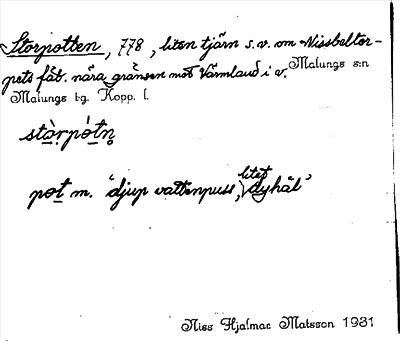 Storpotten, 778, liten tjärn s.v. om Nissbeltor-
pets fäb. nära gränsen mot Värmland i v. Malungs s:n
Malungs t:g. Kopp. l.
stòrpótn̥
pot m. "djup vattenpuss, litet dyhål"
Niss Hjalmar Matsson 1931